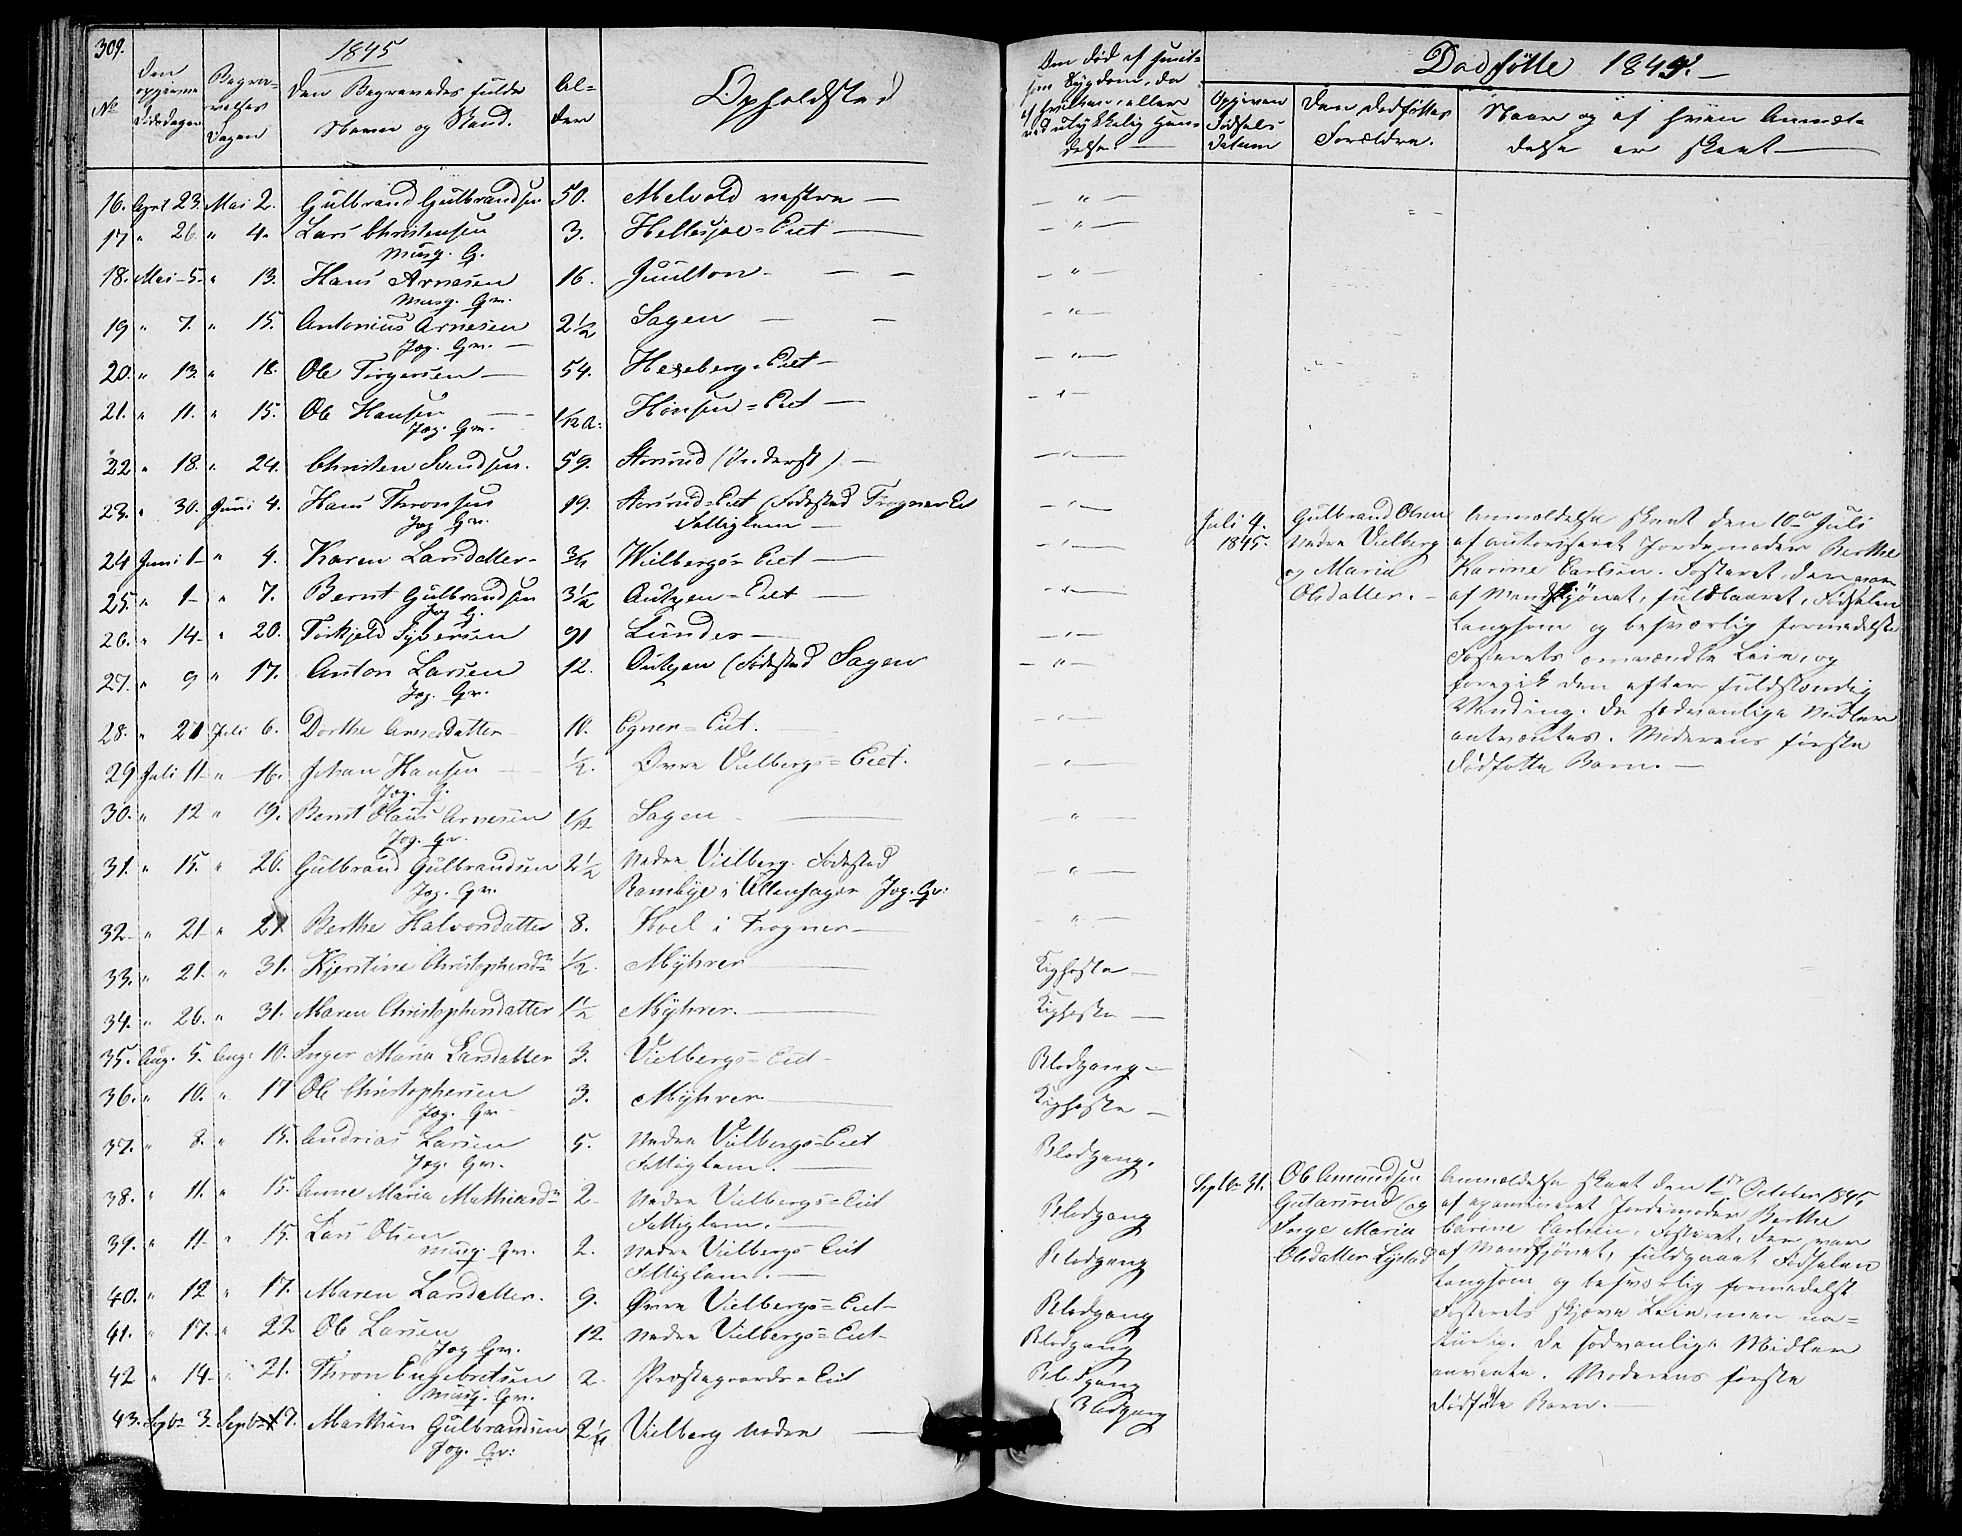 309.
1845
No
Den opgivne Dødsdagen
Begravelses Dagen
Den Begravedes fulde Navn og Stand.
Alder
Opholdsted
Om død af smitsom Sygdom, da af hvilken, eller ved ulykkelig Hændelse.
16. April 23. Mai 2. Gulbrand Gulbrandsen 50. Melvold vestre — — " —
17 " 26 " 4. Lars Christensen 3. Hellesjoe=Eiet — — " —
18. Mai 5. " 13. Hans Arnesen 16. Juulton. — — " —
19 " 7. " 15. Antonius Arnesen 2½ Sagen — — " —
Jog. Gr. —
20. " 13. " 18. Ole Torgersen — 54. Hexeberg=Eiet — — " —
21. " 11. " 15. Ole Hansen 1/12 A. Hønsen=Eiet — — " —
Jog. Gr.
22. " 18. " 24. Christen Svendsen. 59. Asrud (Inderst) — — " —
23. " 30. Juni 4. Hans Thronsen 19. Asrud=Eiet (Fødested Frogner Eie — " —
Jog Gr. Fattiglem —
24 Juni 1 " 4. Karen Larsdatter ¾ Wilbergs=Eiet — — " —
25. " 1 " 7. Bernt Gulbrandsen 3½ Autzen=Eiet — — " —
26. " 14 " 20. Torkjeld Syversen 91 Lunder — — " —
27. " 9 " 17. Anton Larsen 12. Autzen (Fødested Sagen — " —
Jog. Gr.
28. " 21 Juli 6. Dorthe Arnesdatter 10. Egner=Eiet. — " —
29 Juli 11 " 16. Johan Hansen ½. Øvre Vielbergs=Eiet. — " —
Jog. G.
30. " 12 " 19. Bernt Olaus Arnesen 1/12 Sagen — " —
Jog. Gr.
31. " 15. " 26. Gulbrand Gulbrandsen 2½ Nedre Vielberg. Fødested — " —
Jog. Gr. Rambye i Ullensager Jog. Gr.
32 " 21 " 27 Berthe Halvorsdatter 8. Hoel i Frogner — — " —
33. " 21. " 31. Kjerstine Christophersdr ½. Myhrer — Kighoste —
34. " 26. " 31. Maren Christophersdatter 1½ Myhrer. — Kighoste —
35. Aug. 5. Aug. 10. Inger Maria Larsdatter 3. Vielbergs=Eiet — Blodgang —
36. " 10. " 17 Ole Christophersen 3. Myhrer — Kighoste —
Jog. Gr.
37. " 8. " 15. Andrias Larsen 5. Nedre Vielbergs=Eiet Blodgang.
Jog. Gr. Fattiglem. —
38. " 11. " 15. Anne Maria Mathiasdr 2. Nedre Vielbergs=Eiet Blodgang
Fattiglem. —
39. " 11 " 15. Lars Olsen 2. Nedre Vielbergs Eiet Blodgang
Fattiglem. —
40. " 12 " 17. Maren Larsdatter. 9. Øvre Vielbergs=Eiet — Blodgang
41. " 17. " 22 Ole Larsen 12. Nedre Vielbergs=Eiet — Blodgang
Jog Gr.
42 " 14 " 21. Thron Engebretsen 2. Præstegaards=Eiet Blodgang
43. Septbr 3. Septbr 7. Marthin Gulbrandsen 2¼ Vielberg Nedre — Blodgang
Jog. Gr.
Dødfødte 1845. —
Opgiven Fødsels Datum
Den Dødfødtes Forældre.
Naar og af hvem Anmeldelse er skeet —
Juli 4.
1845.
Gulbrand Olsen
Nedre Vielberg
og Maria
Olsdatter. —
Anmeldelse skeet den 10de Juli
af autoriseret Jordemoder Berthe
Karine Carlsen. Fosteret, der var
af Mandkjønet, fuldbaaret, Fødselen
langsom og besværlig formedelst
Fosterets omvendte Leie, og
foregik den efter fuldstændig
Vending. De sædvanlige Midler
anvendtes. Moderens første
dødfødte Barn. —
Septbr 31.
Ole Amundsen
Gutarsrud og
Inge Maria
Olsdatter Lystad
Anmeldelse skeet den 1ste October 1845
af examineret Jordemoder Berthe
Carine Carlsen, Fosteret, der var
af Mandkjønet, fuldbaaret Fødselen
langsom og besværlig formedelst
Fosterets skjæve Leie, men na=
turlig. De sædvanlige Midler
anvendte. Moderens første
dødfødte Barn. —